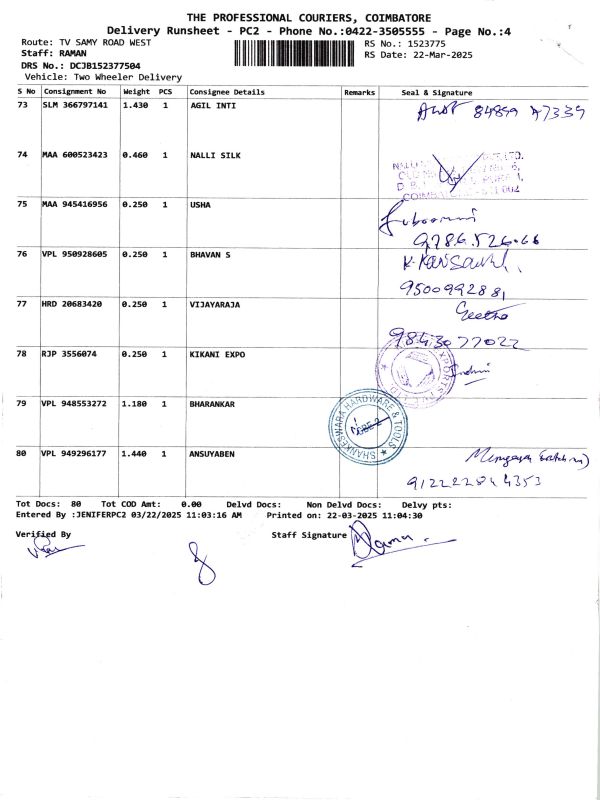 THE PROFESSIONAL COURIERS, COIMBATORE
Delivery Runsheet - PC2 - Phone No.:0422-3505555 - Page No.:4
Route: TV SAMY ROAD WEST RS No.: 1523775
Staff: RAMAN RS Date: 22-Mar-2025
DRS No.: DCJB152377504
Vehicle: Two Wheeler Delivery
S No Consignment No Weight PCS Consignee Details Remarks Seal & Signature
73 SLM 366797141 1.430 1 AGIL INTI
74 MAA 600523423 0.460 1 NALLI SILK
NALLI
COIMBATORE
75 MAA 945416956 0.250 1 USHA
9786526066
76 VPL 950928605 0.250 1 BHAVAN S
9500992881
77 HRD 20683420 0.250 1 VIJAYARAJA Geetha
9843077022
78 RJP 3556074 0.250 1 KIKANI EXPO
79 VPL 948553272 1.180 1 BHARANKAR
SHANKESWARA HARDWARE & TOOLS
80 VPL 949296177 1.440 1 ANSUYABEN
Tot Docs: 80 Tot COD Amt: 0.00 Delvd Docs: Non Delvd Docs: Delvy pts:
Entered By :JENIFERPC2 03/22/2025 11:03:16 AM Printed on: 22-03-2025 11:04:30
Verified By Staff Signature Rama